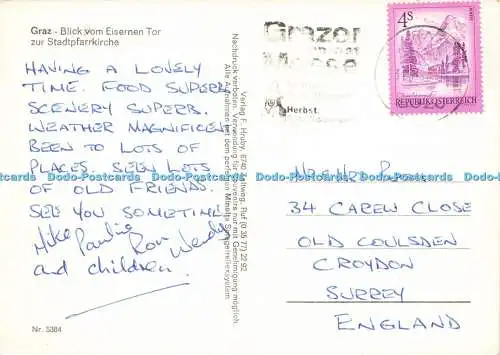 Graz - Blick vom Eisernen Tor
zur Stadtpfarrkirche
HAVING A LOVELY
TIME. FOOD SUPERB
SCENERY SUPERB.
WEATHER MAGNIFICENT
BEEN TO LOTS OF
PLACES, SEEN LOTS
OF OLD FRIENDS.
SEE YOU SOMETIME
Mike Pauline Ron Wendy
and children.
Nr. 5384
Verlag F. Hruby, 8740 Zeltweg, Tel. (0 35 77) 22 92
Nachdruck verboten. Verwendung für Souvenirs nur mit Genehmigung möglich.
Alle Aufnahmen mit dem Minolta Spiegelreflexsystem
Grazer
Messe
Herbst.
4S
REPUBLIK ÖSTERREICH
34 CAREW CLOSE
OLD COULSDEN
CROYDON
SURREY
ENGLAND
Dodo-Postcards Dodo-Postcards Dodo-Postcards Dodo-Postcards Dodo-Postcards Dodo-Postcards